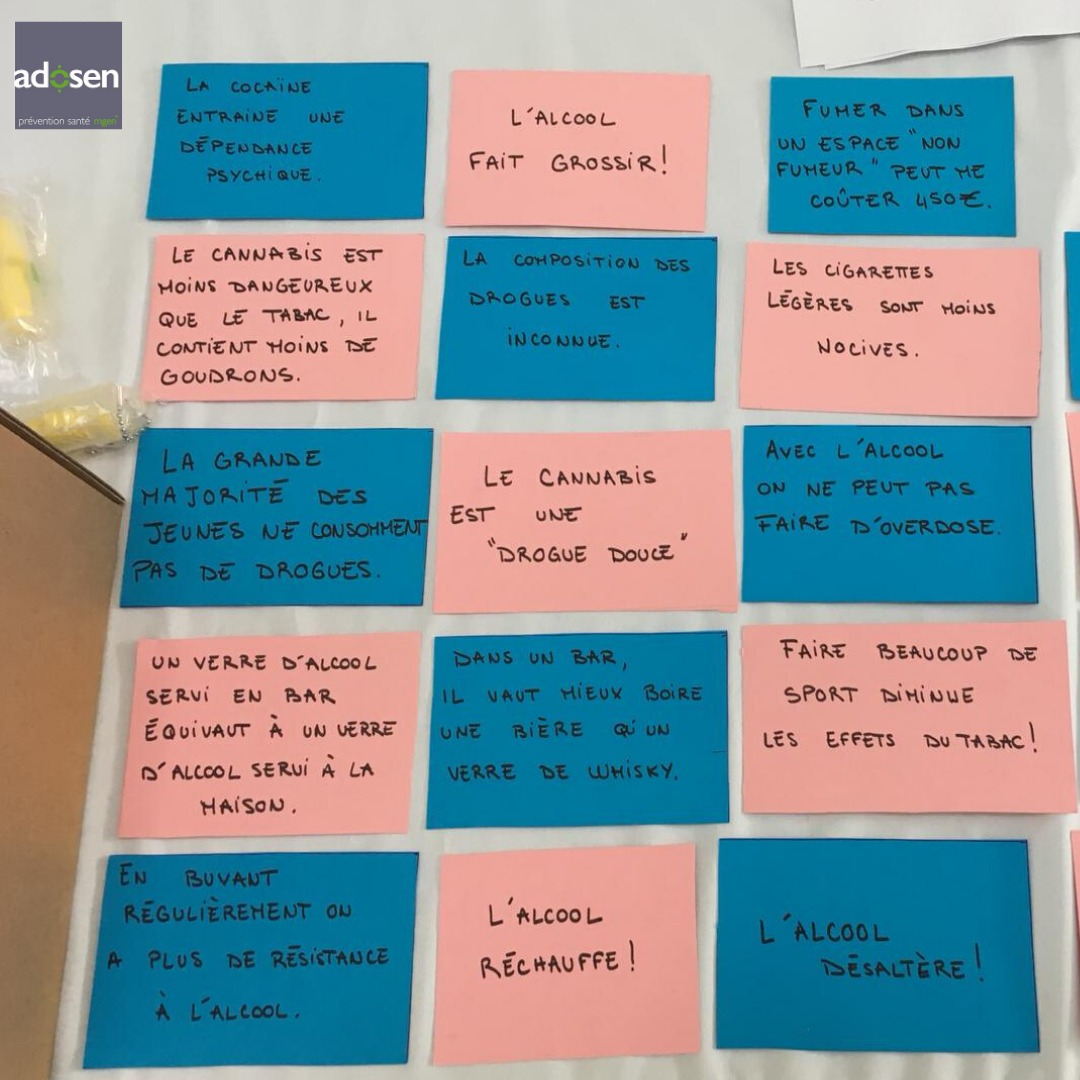 adosen
prévention santé mgen
LA COCAÏNE
ENTRAINE UNE
DÉPENDANCE
PSYCHIQUE.
L'ALCOOL
FAIT GROSSIR!
FUMER DANS
UN ESPACE "NON
FUMEUR" PEUT ME
COÛTER 450€.
LE CANNABIS EST
MOINS DANGEUREUX
QUE LE TABAC, IL
CONTIENT MOINS DE
GOUDRONS.
LA COMPOSITION DES
DROGUES EST
INCONNUE.
LES CIGARETTES
LÉGÈRES SONT MOINS
NOCIVES.
LA GRANDE
MAJORITÉ DES
JEUNES NE CONSOMMENT
PAS DE DROGUES.
LE CANNABIS
EST UNE
"DROGUE DOUCE"
AVEC L'ALCOOL
ON NE PEUT PAS
FAIRE D'OVERDOSE.
UN VERRE D'ALCOOL
SERVI EN BAR
ÉQUIVAUT À UN VERRE
D'ALCOOL SERVI À LA
MAISON.
DANS UN BAR,
IL VAUT MIEUX BOIRE
UNE BIÈRE QU'UN
VERRE DE WHISKY.
FAIRE BEAUCOUP DE
SPORT DIMINUE
LES EFFETS DU TABAC!
EN BUVANT
RÉGULIÈREMENT ON
A PLUS DE RÉSISTANCE
À L'ALCOOL.
L'ALCOOL
RÉCHAUFFE!
L'ALCOOL
DÉSALTÈRE!